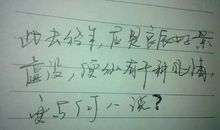 此去经年，应是良辰好景
虚没，便纵有千种风情
更与何人说？